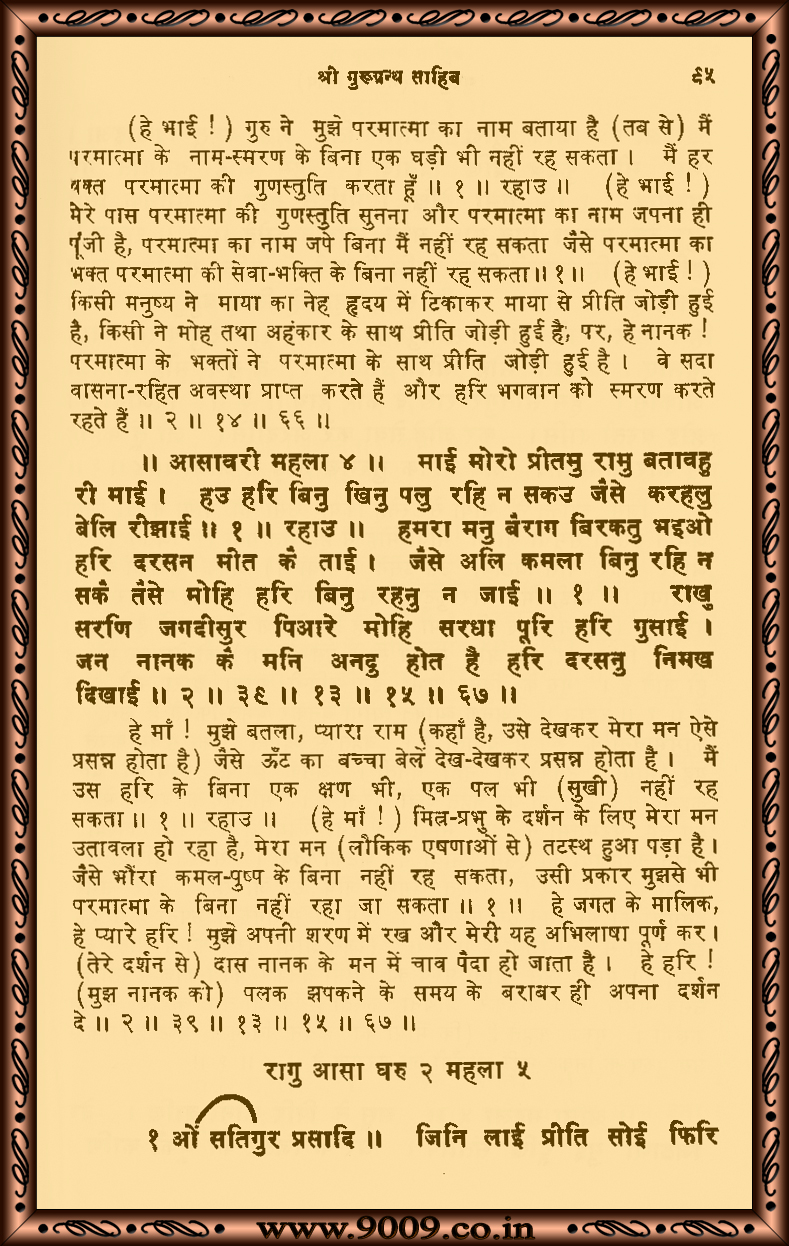 श्री गुरूग्रन्थ साहिब ९५
(हे भाई ! ) गुरु ने मुझे परमात्मा का नाम बताया है (तब से) मैं
परमात्मा के नाम-स्मरण के बिना एक घड़ी भी नहीं रह सकता । मैं हर
वक्त परमात्मा की गुणस्तुति करता हूँ ॥ १ ॥ रहाउ ॥ (हे भाई ! )
मेरे पास परमात्मा की गुणस्तुति सुनना और परमात्मा का नाम जपना ही
पूंजी है, परमात्मा का नाम जपे बिना मैं नहीं रह सकता जैसे परमात्मा का
भक्त परमात्मा की सेवा-भक्ति के बिना नहीं रह सकता॥ १॥ (हे भाई ! )
किसी मनुष्य ने माया का नेह हृदय में टिकाकर माया से प्रीति जोड़ी हुई
है, किसी ने मोह तथा अहंकार के साथ प्रीति जोड़ी हुई है; पर, हे नानक !
परमात्मा के भक्तों ने परमात्मा के साथ प्रीति जोड़ी हुई है । वे सदा
वासना-रहित अवस्था प्राप्त करते हैं और हरि भगवान को स्मरण करते
रहते हैं ॥ २ ॥ १४ ॥ ६६ ॥
॥ आसावरी महला ४ ॥ माई मोरो प्रीतमु रामु बतावहु
री माई । हउ हरि बिनु खिनु पलु रहि न सकउ जैसे करहलु
बेलि रीझाई ॥ १ ॥ रहाउ ॥ हमरा मनु बैराग बिरकतु भइओ
हरि दरसन मीत कै ताई । जैसे अलि कमला बिनु रहि न
सकै तैसे मोहि हरि बिनु रहनु न जाई ॥ १ ॥ राखु
सरणि जगदीसुर पिआरे मोहि सरधा पूरि हरि गुसाई ।
जन नानक कै मनि अनदु होत है हरि दरसनु निमख
दिखाई ॥ २ ॥ ३९ ॥ १३ ॥ १५ ॥ ६७ ॥
हे माँ ! मुझे बतला, प्यारा राम (कहाँ है, उसे देखकर मेरा मन ऐसे
प्रसन्न होता है) जैसे ऊँट का बच्चा बेलें देख-देखकर प्रसन्न होता है । मैं
उस हरि के बिना एक क्षण भी, एक पल भी (सुखी) नहीं रह
सकता ॥ १ ॥ रहाउ ॥ (हे माँ ! ) मित्र-प्रभु के दर्शन के लिए मेरा मन
उतावला हो रहा है, मेरा मन (लौकिक एषणाओं से) तटस्थ हुआ पड़ा है ।
जैसे भौंरा कमल-पुष्प के बिना नहीं रह सकता, उसी प्रकार मुझसे भी
परमात्मा के बिना नहीं रहा जा सकता ॥ १ ॥ हे जगत के मालिक,
हे प्यारे हरि ! मुझे अपनी शरण में रख और मेरी यह अभिलाषा पूर्ण कर ।
(तेरे दर्शन से) दास नानक के मन में चाव पैदा हो जाता है । हे हरि !
(मुझ नानक को) पलक झपकने के समय के बराबर ही अपना दर्शन
दे ॥ २ ॥ ३९ ॥ १३ ॥ १५ ॥ ६७ ॥
रागु आसा घरु २ महला ५
१ ओं सतिगुर प्रसादि ॥ जिनि लाई प्रीति सोई फिरि
www.9009.co.in